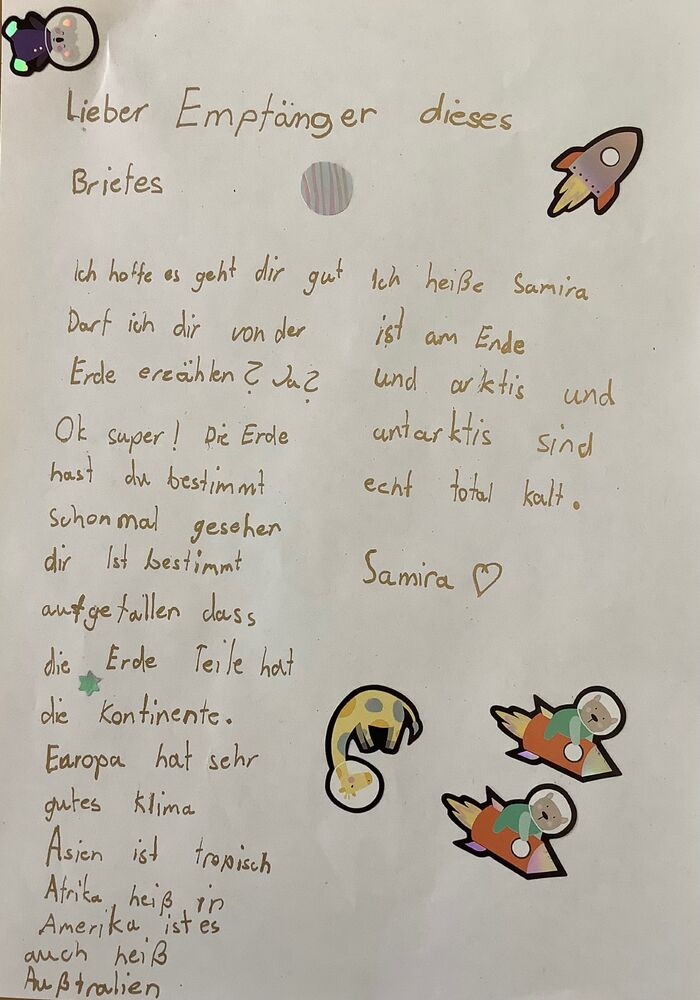 Lieber Empfänger dieses
Briefes
Ich hoffe es geht dir gut
Darf ich dir von der
Erde erzählen? Ja?
Ok super! Die Erde
hast du bestimmt
schonmal gesehen
dir Ist bestimmt
aufgefallen dass
die Erde Teile hat
die Kontinente.
Europa hat sehr
gutes Klima
Asien ist tropisch
Afrika heiß in
Amerika ist es
auch heiß
Außtralien
Ich heiße Samira
ist am Ende
und arktis und
antarktis sind
echt total kalt.
Samira ♡